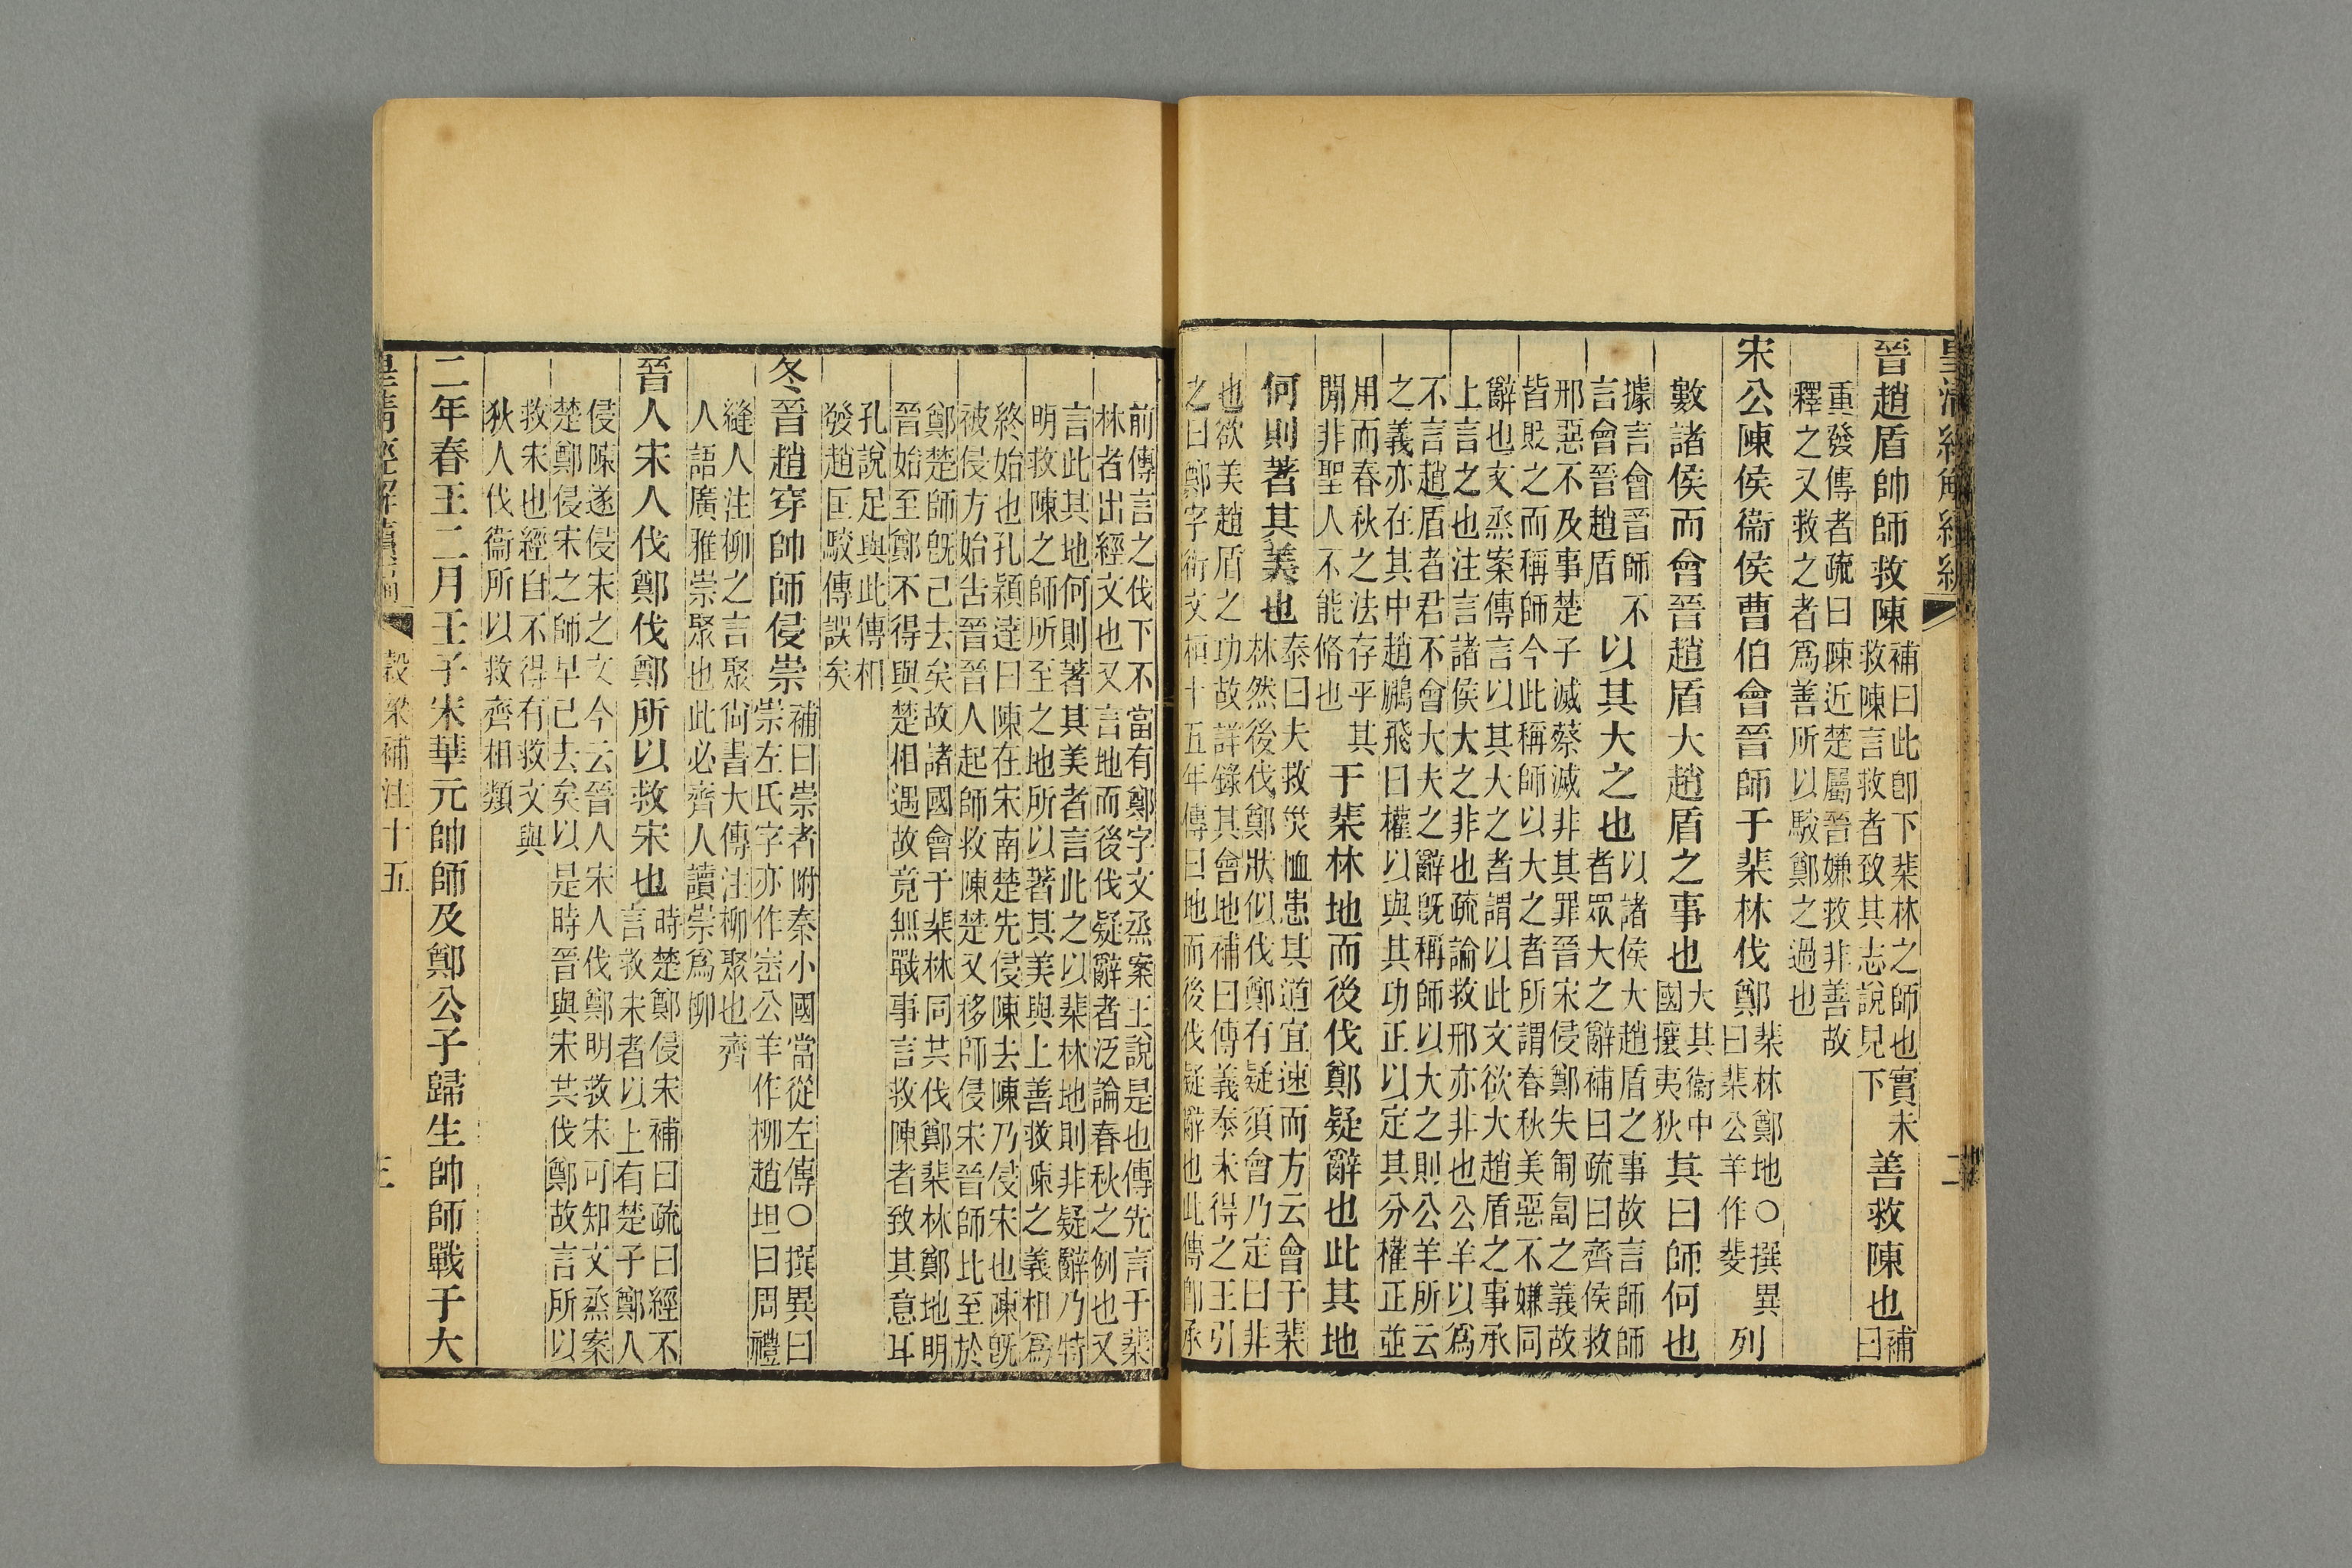 皇清經解續編
晉趙盾帥師救陳補曰此卽下棐林之師也實未
救陳言救者致其志說見下善救陳也補曰
重發傳者疏曰陳近楚屬晉嫌救非善故
釋之又救之者爲善所以駮鄭之過也
宋公陳侯衞侯曹伯會晉師于棐林伐鄭棐林鄭地○撰異
曰棐公羊作斐列
數諸侯而會晉趙盾大趙盾之事也大其衞中
國攘夷狄其曰師何也
據言會晉師不
言會晉趙盾以其大之也以諸侯大趙盾之事故言師師
者眾大之辭補曰疏曰齊侯救
邢惡不及事楚子滅蔡滅非其罪晉宋侵鄭失匍匐之義故
皆貶之而稱師今此稱師以大之者所謂春秋美惡不嫌同
辭也文烝案傳言以其大之者謂以此文欲大趙盾之事承
上言之也注言諸侯大之非也疏論救邢亦非也公羊以爲
不言趙盾者君不會大夫之辭旣稱師以大之則公羊所云
之義亦在其中趙鵬飛曰權以與其功正以定其分權正並
用而春秋之法存乎其
閒非聖人不能脩也于棐林地而後伐鄭疑辭也此其地
何則著其美也泰曰夫救災恤患其道宜速而方云會于棐
林然後伐鄭狀似伐鄭有疑須會乃定曰非
也欲美趙盾之功故詳錄其會地補曰傳義泰未得之王引
之曰鄭字衍文桓十五年傳曰地而後伐疑辭也此傳卽承
二
前傳言之伐下不當有鄭字文烝案王說是也傳先言于棐
林者出經文也又言地而後伐疑辭者泛論春秋之例也又
言此其地何則著其美者言此之以棐林地則非疑辭乃特
明救陳之師所至之地所以著其美與上善救陳之義相爲
終始也孔穎達曰陳在宋南楚先侵陳去陳乃侵宋也陳旣
被侵方始告晉晉人起師救陳楚又移師侵宋晉師比至於
鄭楚師旣已去矣故諸國會于棐林同共伐鄭棐林鄭地明
晉始至鄭不得與楚相遇故竟無戰事言救陳者致其意耳
孔說足與此傳相
發趙匡駮傳誤矣
冬晉趙穿帥師侵崇補曰崇者附秦小國當從左傳○撰異曰
崇左氏字亦作崈公羊作柳趙坦曰周禮
縫人注柳之言聚尙書大傳注柳聚也齊
人語廣雅崇聚也此必齊人讀崇爲柳
晉人宋人伐鄭伐鄭所以救宋也時楚鄭侵宋補曰疏曰經不
言救宋者以上有楚子鄭人
侵陳遂侵宋之文今云晉人宋人伐鄭明救宋可知文烝案
楚鄭侵宋之師早已去矣以是時晉與宋共伐鄭故言所以
救宋也經自不得有救文與
狄人伐衞所以救齊相類
二年春王二月壬子宋華元帥師及鄭公子歸生帥師戰于大
皇淸經解續編
穀梁補注十五
三